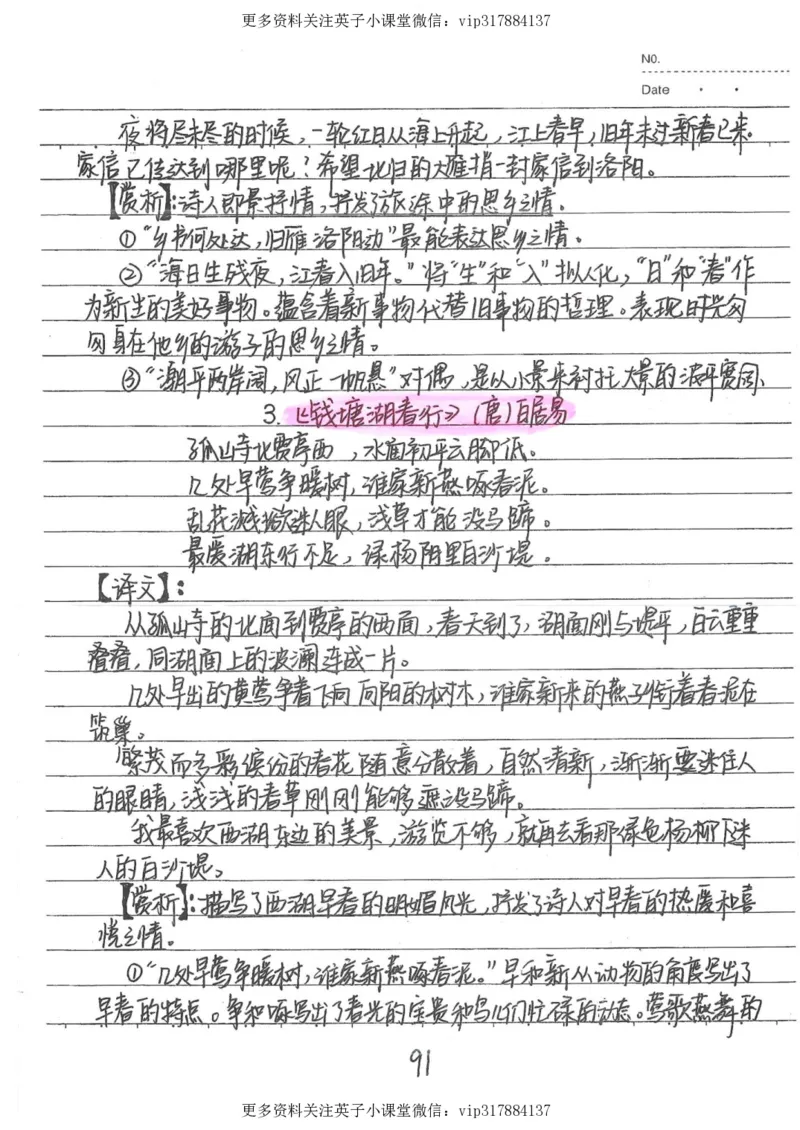 更多资料关注英子小课堂微信：vip317884137
NO.
Date
夜将尽未尽的时候，一轮红日从海上升起，江上春早，旧年未过新春已来。
家信已传达到哪里呢？希望北归的大雁捎一封家信到洛阳。
【赏析】：诗人即景抒情，抒发了旅途中的思乡之情。
①“乡书何处达，归雁洛阳边”最能表达思乡之情。
②“海日生残夜，江春入旧年。”将“生”和“入”拟人化，“日”和“春”作
为新生的美好事物。蕴含着新事物代替旧事物的哲理。表现时光匆
匆身在他乡的游子的思乡之情。
③“潮平两岸阔，风正一帆悬”对偶，是以小景来衬托大景的波平宽阔、
3.《钱塘湖春行》（唐）白居易
孤山寺北贾亭西，水面初平云脚低。
几处早莺争暖树，谁家新燕啄春泥。
乱花渐欲迷人眼，浅草才能没马蹄。
最爱湖东行不足，绿杨阴里白沙堤。
【译文】：
从孤山寺的北面到贾亭的西面，春天到了，湖面刚与堤平，白云重重
叠叠，同湖面上的波澜连成一片。
几处早出的黄莺争着飞向向阳的树木，谁家新来的燕子衔着春泥在
筑巢。
繁茂而多彩缤纷的春花随意分散着，自然清新，渐渐要迷住人
的眼睛，浅浅的春草刚刚能够遮没马蹄。
我最喜欢西湖东边的美景，游览不够，就再去看那绿色杨柳下迷
人的白沙堤。
【赏析】：描写了西湖早春的明媚风光，抒发了诗人对早春的热爱和喜
悦之情。
①“几处早莺争暖树，谁家新燕啄春泥。”早和新从动物的角度写出了
早春的特点。争和啄写出了春光的宝贵和鸟儿们忙碌的动态。莺歌燕舞的
91
更多资料关注英子小课堂微信：vip317884137